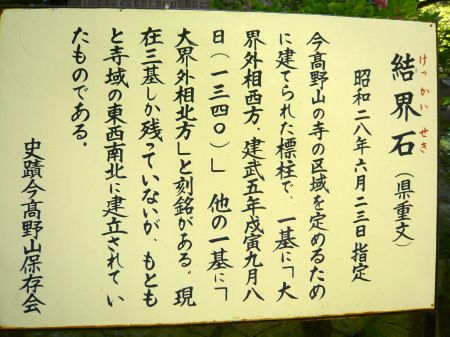 結界石（県重文）
けっかいせき
昭和二八年六月二三日指定
今髙野山の寺の区域を定めるため
に建てられた標柱で、一基に「大
界外相西方、建武五年戊寅九月八
日（一三四〇）」他の一基に「
大界外相北方」と刻銘がある。現
在三基しか残っていないが、もとも
と寺域の東西南北に建立されてい
たものである。
史蹟今髙野山保存会